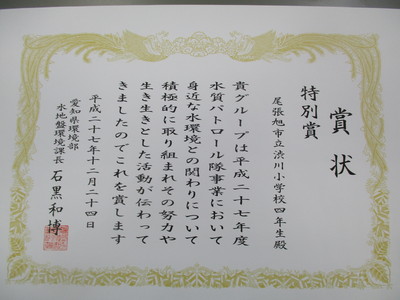 賞状
特別賞
尾張旭市立渋川小学校四年生殿
貴グループは平成二十七年度
水質パトロール隊事業において
身近な水環境との関わりについて
積極的に取り組まれその努力や
生き生きとした活動が伝わって
きましたのでこれを賞します
平成二十七年十二月二十四日
愛知県環境部
水地盤環境課長 石黒和博